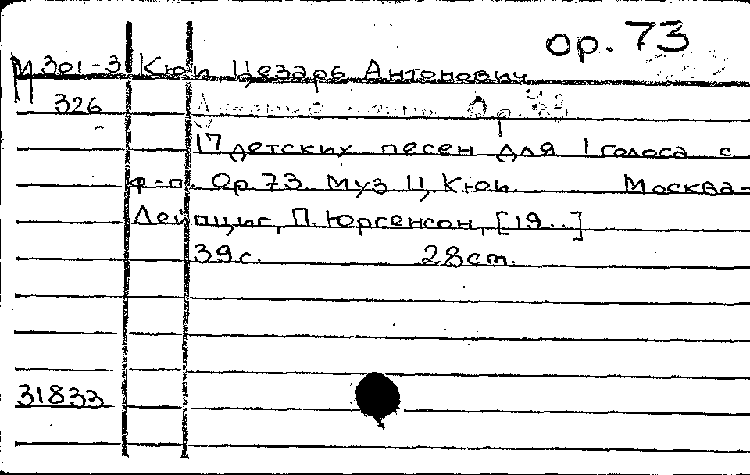 ор. 73
М 301-3 Кюи Цезарь Антонович
326 Ор. 73
17 детских песен для 1 голоса с
ф-п. Ор 73. Муз Ц. Кюи Москва-
Лейпциг, П. Юргенсон, [19..]
39 с. 28 cm.
31833